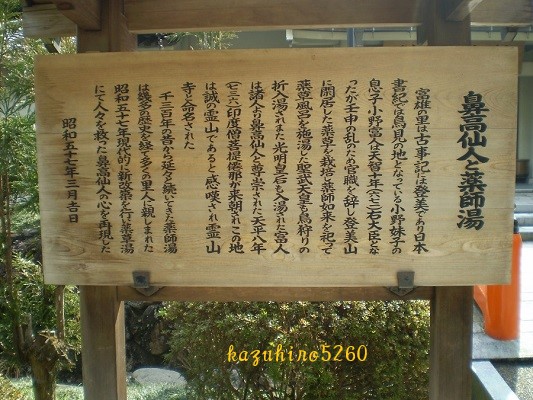 鼻高仙人と薬師湯
富雄の里は古事記に登美であり日本
書紀では鳥見の地となっている小野妹子の
息子小野富人は天智十年(六七一)右大臣とな
ったが壬申の乱のため官職を辞し登美山
に閑居した薬草を栽培し薬師如来を祀って
薬草風呂を施湯した聖武天皇も鳥狩りの
折入湯されまた光明皇后も入湯された富人
は諸人より鼻高仙人と尊崇された天平八年
(七三六)印度僧菩提僊那が来朝されこの地
は誠の霊山であると感嘆され霊山
寺と命名された
千三百年の昔から延々と続いてきた薬師湯
は幾多の歴史を経て多くの里人に親しまれた
昭和五十七年現代的に新改築を行い薬草湯
にて人々を救った鼻高仙人の心を再現した
昭和五十七年三月吉日
kazuhiro5260